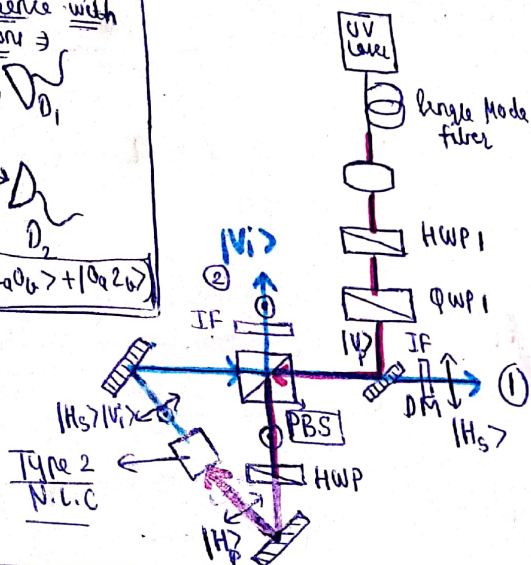 with
D₁
D₂
0ᵤ> + |0ₐ2ᵤ>
UV
Laser
Single Mode
fiber
HWP 1
QWP 1
|Vi>
②
IF
|Vp>
IF
DM
①
|Hs>
PBS
|Hs>|Vi>
Type 2
N.L.C
HWP
|Hp>